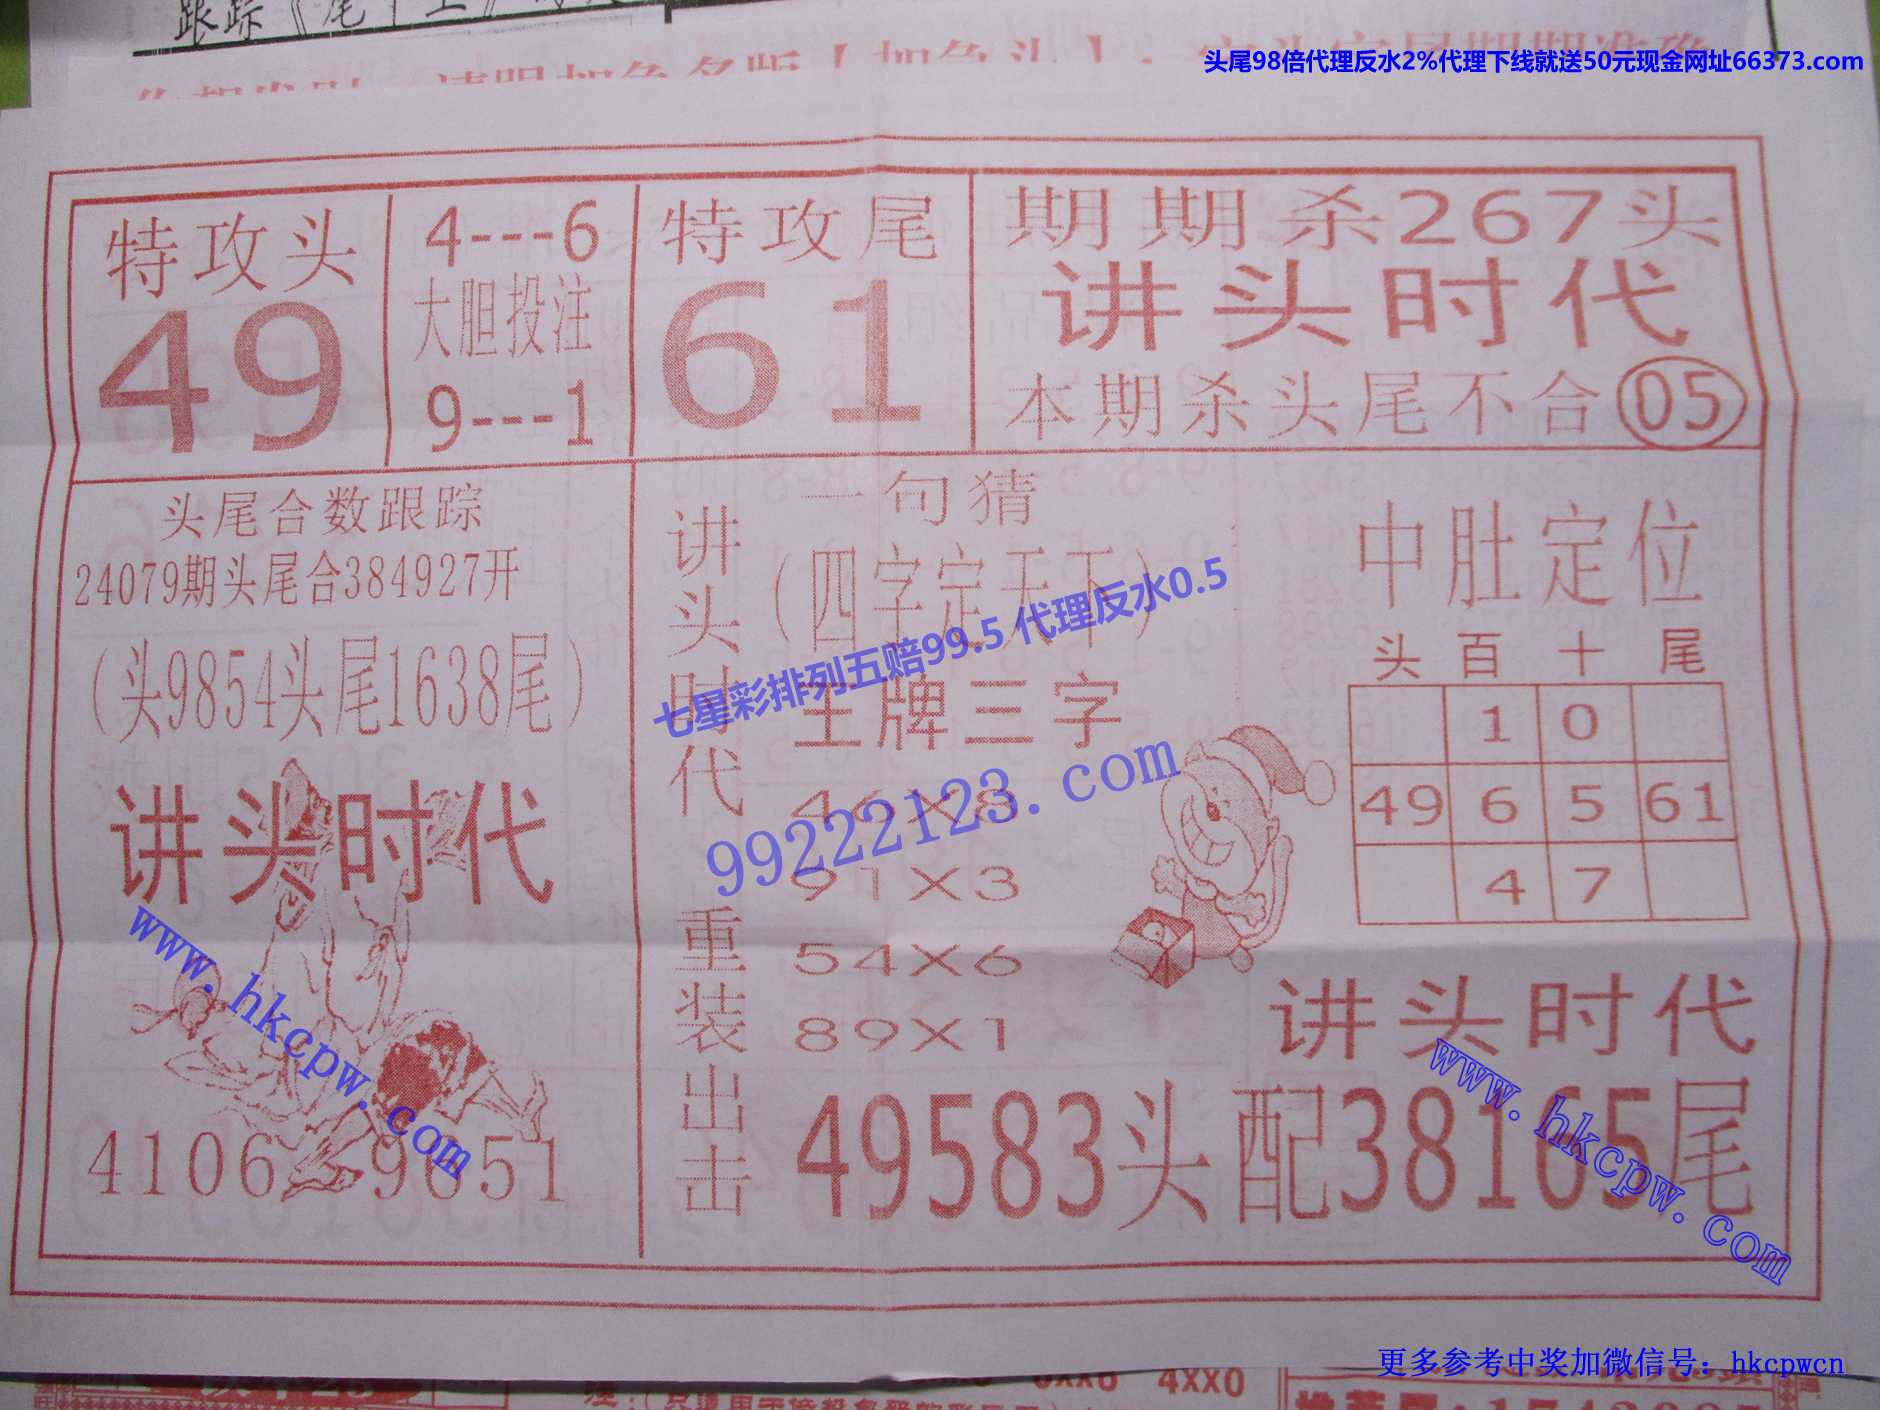 头尾98倍代理反水2%代理下线就送50元现金网址66373.com
特攻头
49
4---6
大胆投注
9---1
特攻尾
61
期期杀267头
讲头时代
本期杀头尾不合05
头尾合数跟踪
24079期头尾合384927开
（头9854头尾1638尾）
讲头时代
www.hkcpw.com
4106
讲头时代
重装出击
一句猜
（四字定天下）
七星彩排列五赔99.5 代理反水0.5
王牌三字
46X8
99222123.com
91X3
54X6
89X1
中肚定位
头 百 十 尾
1 0
49 6 5 61
4 7
讲头时代
49583头配38165尾
www.hkcpw.com
更多参考中奖加微信号：hkcpwcn
4XX0